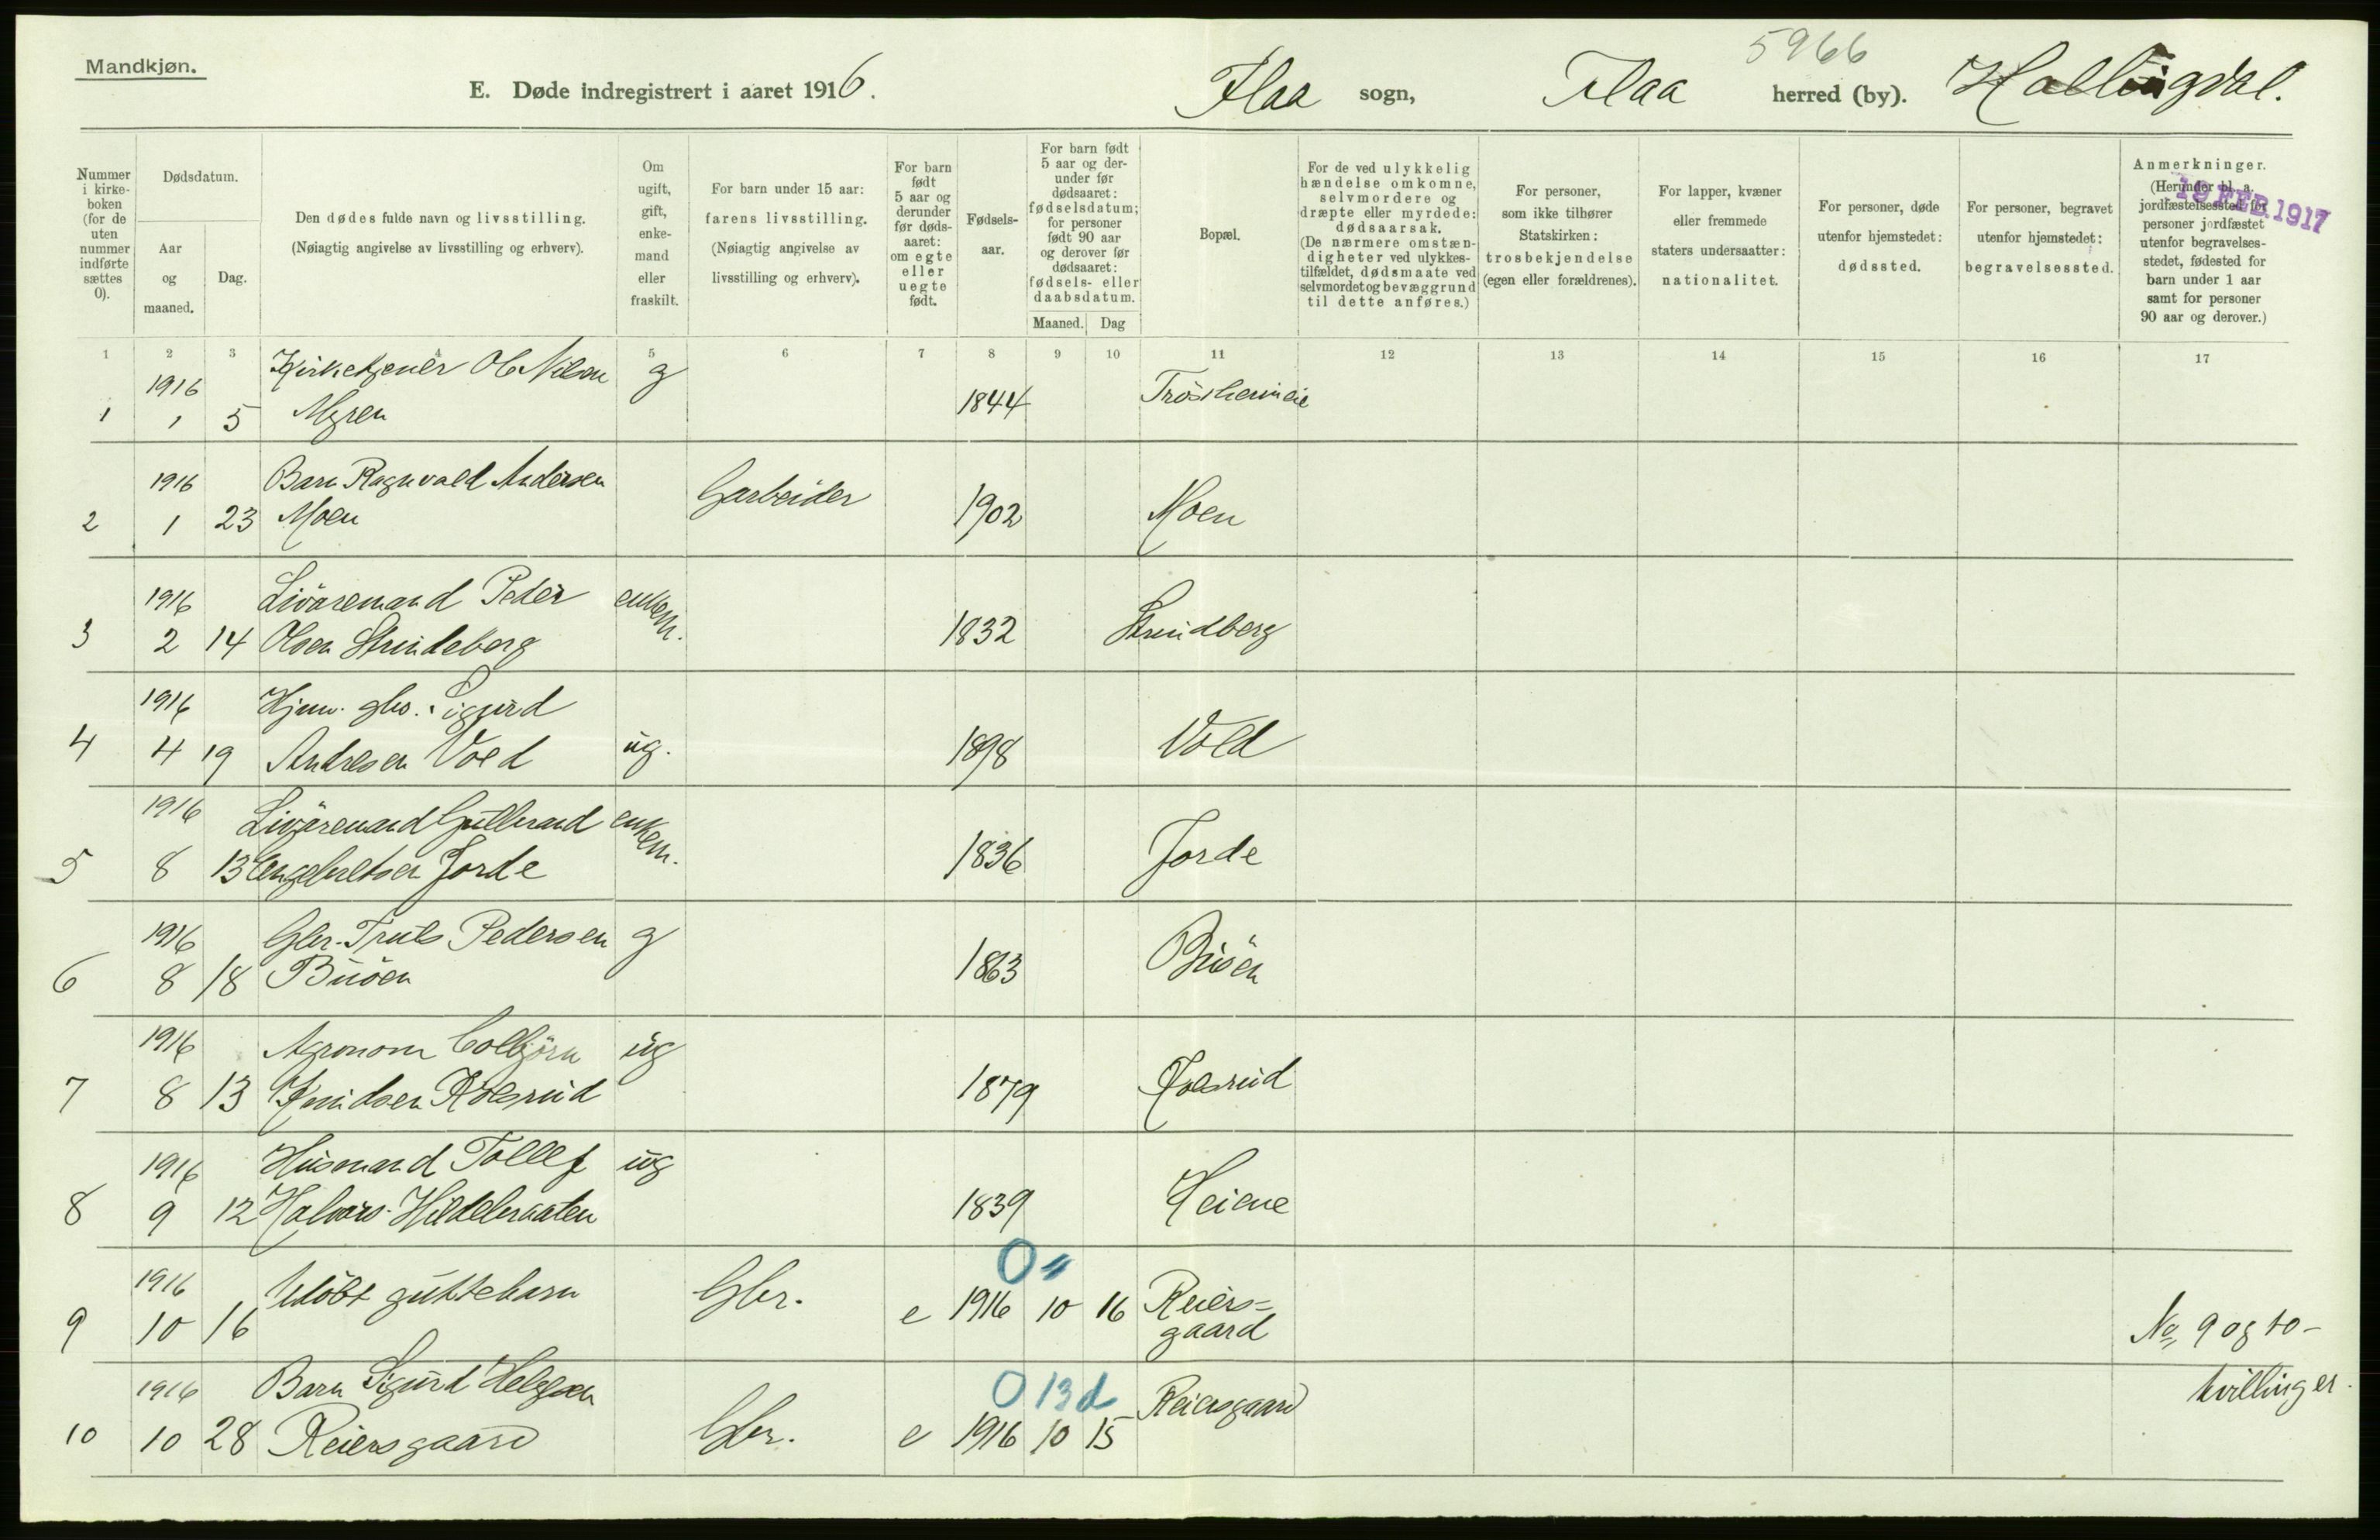 Mandkjøn.
5966
E. Døde indregistrert i aaret 1916.
Flaa sogn, Flaa herred (by). Hallingdal.
Nummer i kirkeboken (for de uten nummer indførte sættes 0).
Dødsdatum.
Aar og maaned.
Dag.
Den dødes fulde navn og livsstilling.
(Nøiagtig angivelse av livsstilling og erhverv).
Om ugift, gift, enkemand eller fraskilt.
For barn under 15 aar: farens livsstilling.
(Nøiagtig angivelse av livsstilling og erhverv).
For barn født 5 aar og derunder før dødsaaret: om egte eller uegte født.
Fødselsaar.
For barn født 5 aar og derunder før dødsaaret: fødselsdatum; for personer født 90 aar og derover før dødsaaret: fødsels- eller daabsdatum.
Maaned. Dag
Bopæl.
For de ved ulykkelig hændelse omkomne, selvmordere og dræpte eller myrdede: dødsaarsak.
(De nærmere omstændigheter ved ulykkestilfældet, dødsmaate ved selvmordet og bevæggrund til dette anføres.)
For personer, som ikke tilhører Statskirken: trosbekjendelse (egen eller forældrenes).
For lapper, kvæner eller fremmede staters undersaatter: nationalitet.
For personer, døde utenfor hjemstedet: dødssted.
For personer, begravet utenfor hjemstedet: begravelsessted.
Anmerkninger.
(Herunder bl. a. jordfæstelsessted for personer jordfæstet utenfor begravelsesstedet, fødested for barn under 1 aar samt for personer 90 aar og derover.)
19 FEB. 1917
1 2 3 4 5 6 7 8 9 10 11 12 13 14 15 16 17
1916 Kirketjener Ole Nilsen g
1 1 5 Myren 1844
1916 Barn Ragnvald Andersen Garbeider
2 1 23 Moen 1902 Moen
1916 Livøremand Peder enkem.
3 2 14 Olsen Strindeberg 1832 Strindberg
1916 Hjem. gbr. Sigurd
4 4 19 Andresen Vold ug. 1898 Vold
1916 Livøremand Gulbrand enkem.
5 8 13 Engebretsen Jorde 1836 Jorde
1916 Gbr. Truls Pedersen g
6 8 18 Buöen 1863 Buöen
1916 Agronom Colbjörn ug
7 8 13 Knudsen Rolsrud 1879 Rolsrud
1916 Husmand Tollef ug
8 9 12 Halvors. Hildebraaten 1839 Heiene
1916 Udöbt guttebarn Gbr. 0 "
9 10 16 e 1916 10 16 Reiers=
gaard
No 9 og 10 -
1916 Barn Sigurd Helgesen 0 13 d Reiersgaard tvillinger.
10 10 28 Reiersgaard Gbr. e 1916 10 15